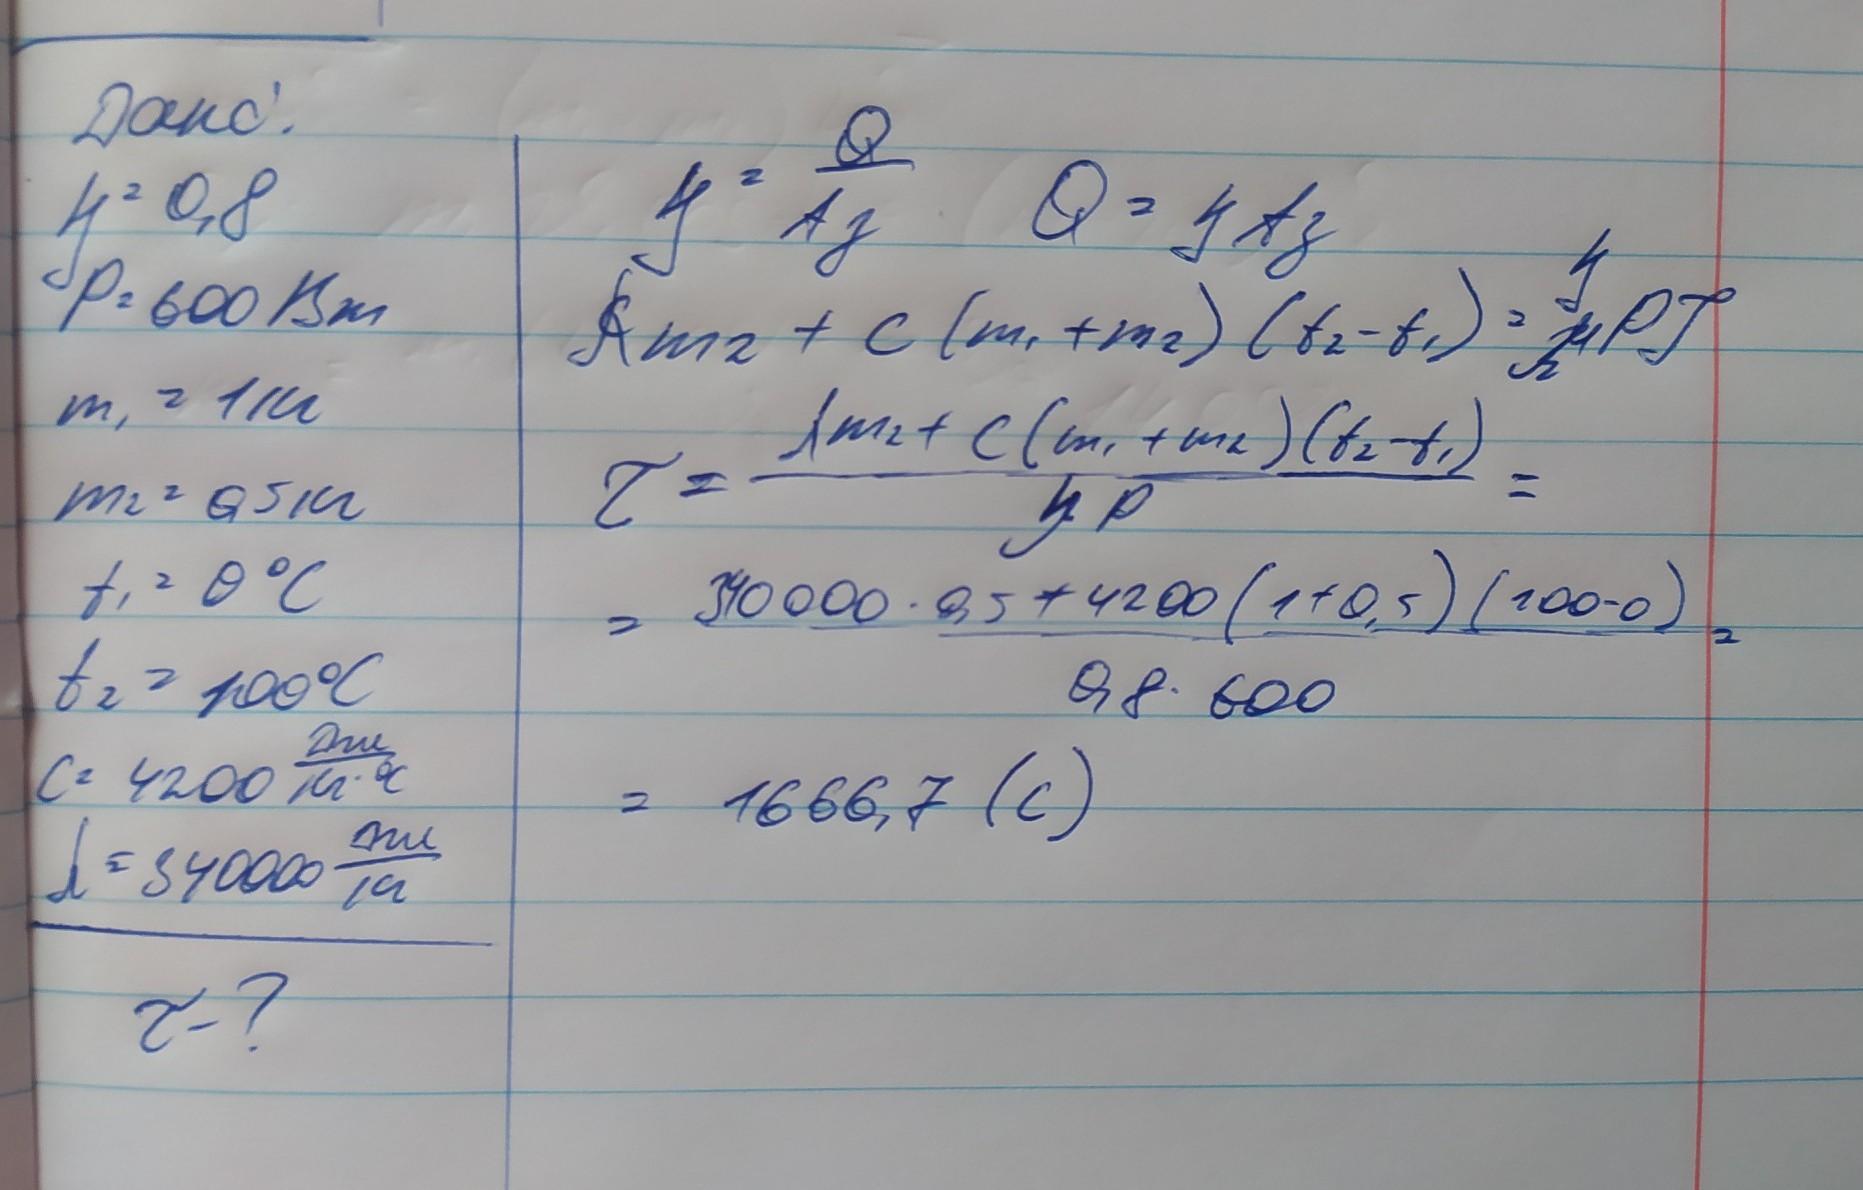 Дано:
η = 0,8
P = 600 Вт
m₁ = 1 кг
m₂ = 0,5 кг
t₁ = 0 °C
t₂ = 100 °C
c = 4200 Дж/кг·°C
λ = 340000 Дж/кг
τ - ?
η = Q/Aз Q = η Aз
λm₂ + c (m₁ + m₂) (t₂ - t₁) = η Pτ
τ = λm₂ + c (m₁ + m₂) (t₂ - t₁) / η P =
= 340000 · 0,5 + 4200 (1 + 0,5) (100-0) / 0,8 · 600 =
= 1666,7 (с)